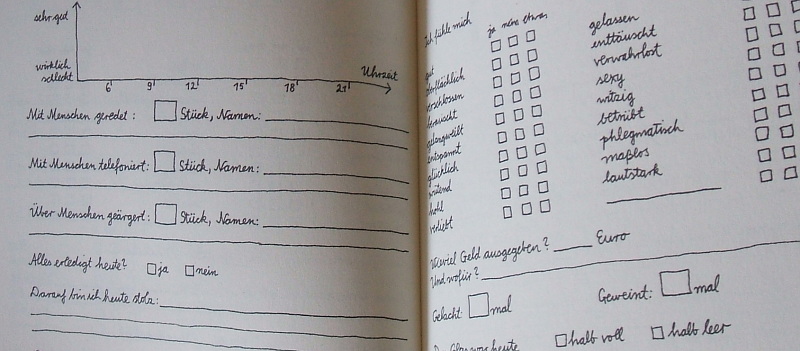 sehr gut
wirklich
schlecht
Uhrzeit
6 9 12 15 18 21
Mit Menschen geredet: Stück, Namen:
Mit Menschen telefoniert: Stück, Namen:
Über Menschen geärgert: Stück, Namen:
Alles erledigt heute? ja nein
Darauf bin ich heute stolz:
Ich fühle mich
ja etwas
gut
oberflächlich
verschlossen
berauscht
gelangweilt
entspannt
glücklich
wütend
hohl
verliebt
gelassen
enttäuscht
verwahrlost
sexy
witzig
betrübt
phlegmatisch
maßlos
lautstark
Wieviel Geld ausgegeben? Euro
Und wofür?
Gelacht: mal Geweint: mal
Glas war heute halb voll halb leer